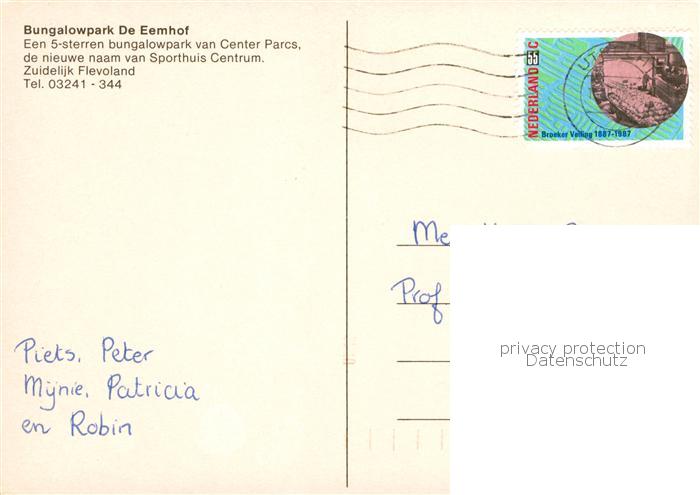 Bungalowpark De Eemhof
Een 5-sterren bungalowpark van Center Parcs,
de nieuwe naam van Sporthuis Centrum.
Zuidelijk Flevoland
Tel. 03241 - 344
NEDERLAND 55 C
Broeker Veiling 1887-1987
UT
Prof
privacy protection
Datenschutz
Piets, Peter
Mijnie, Patricia
en Robin